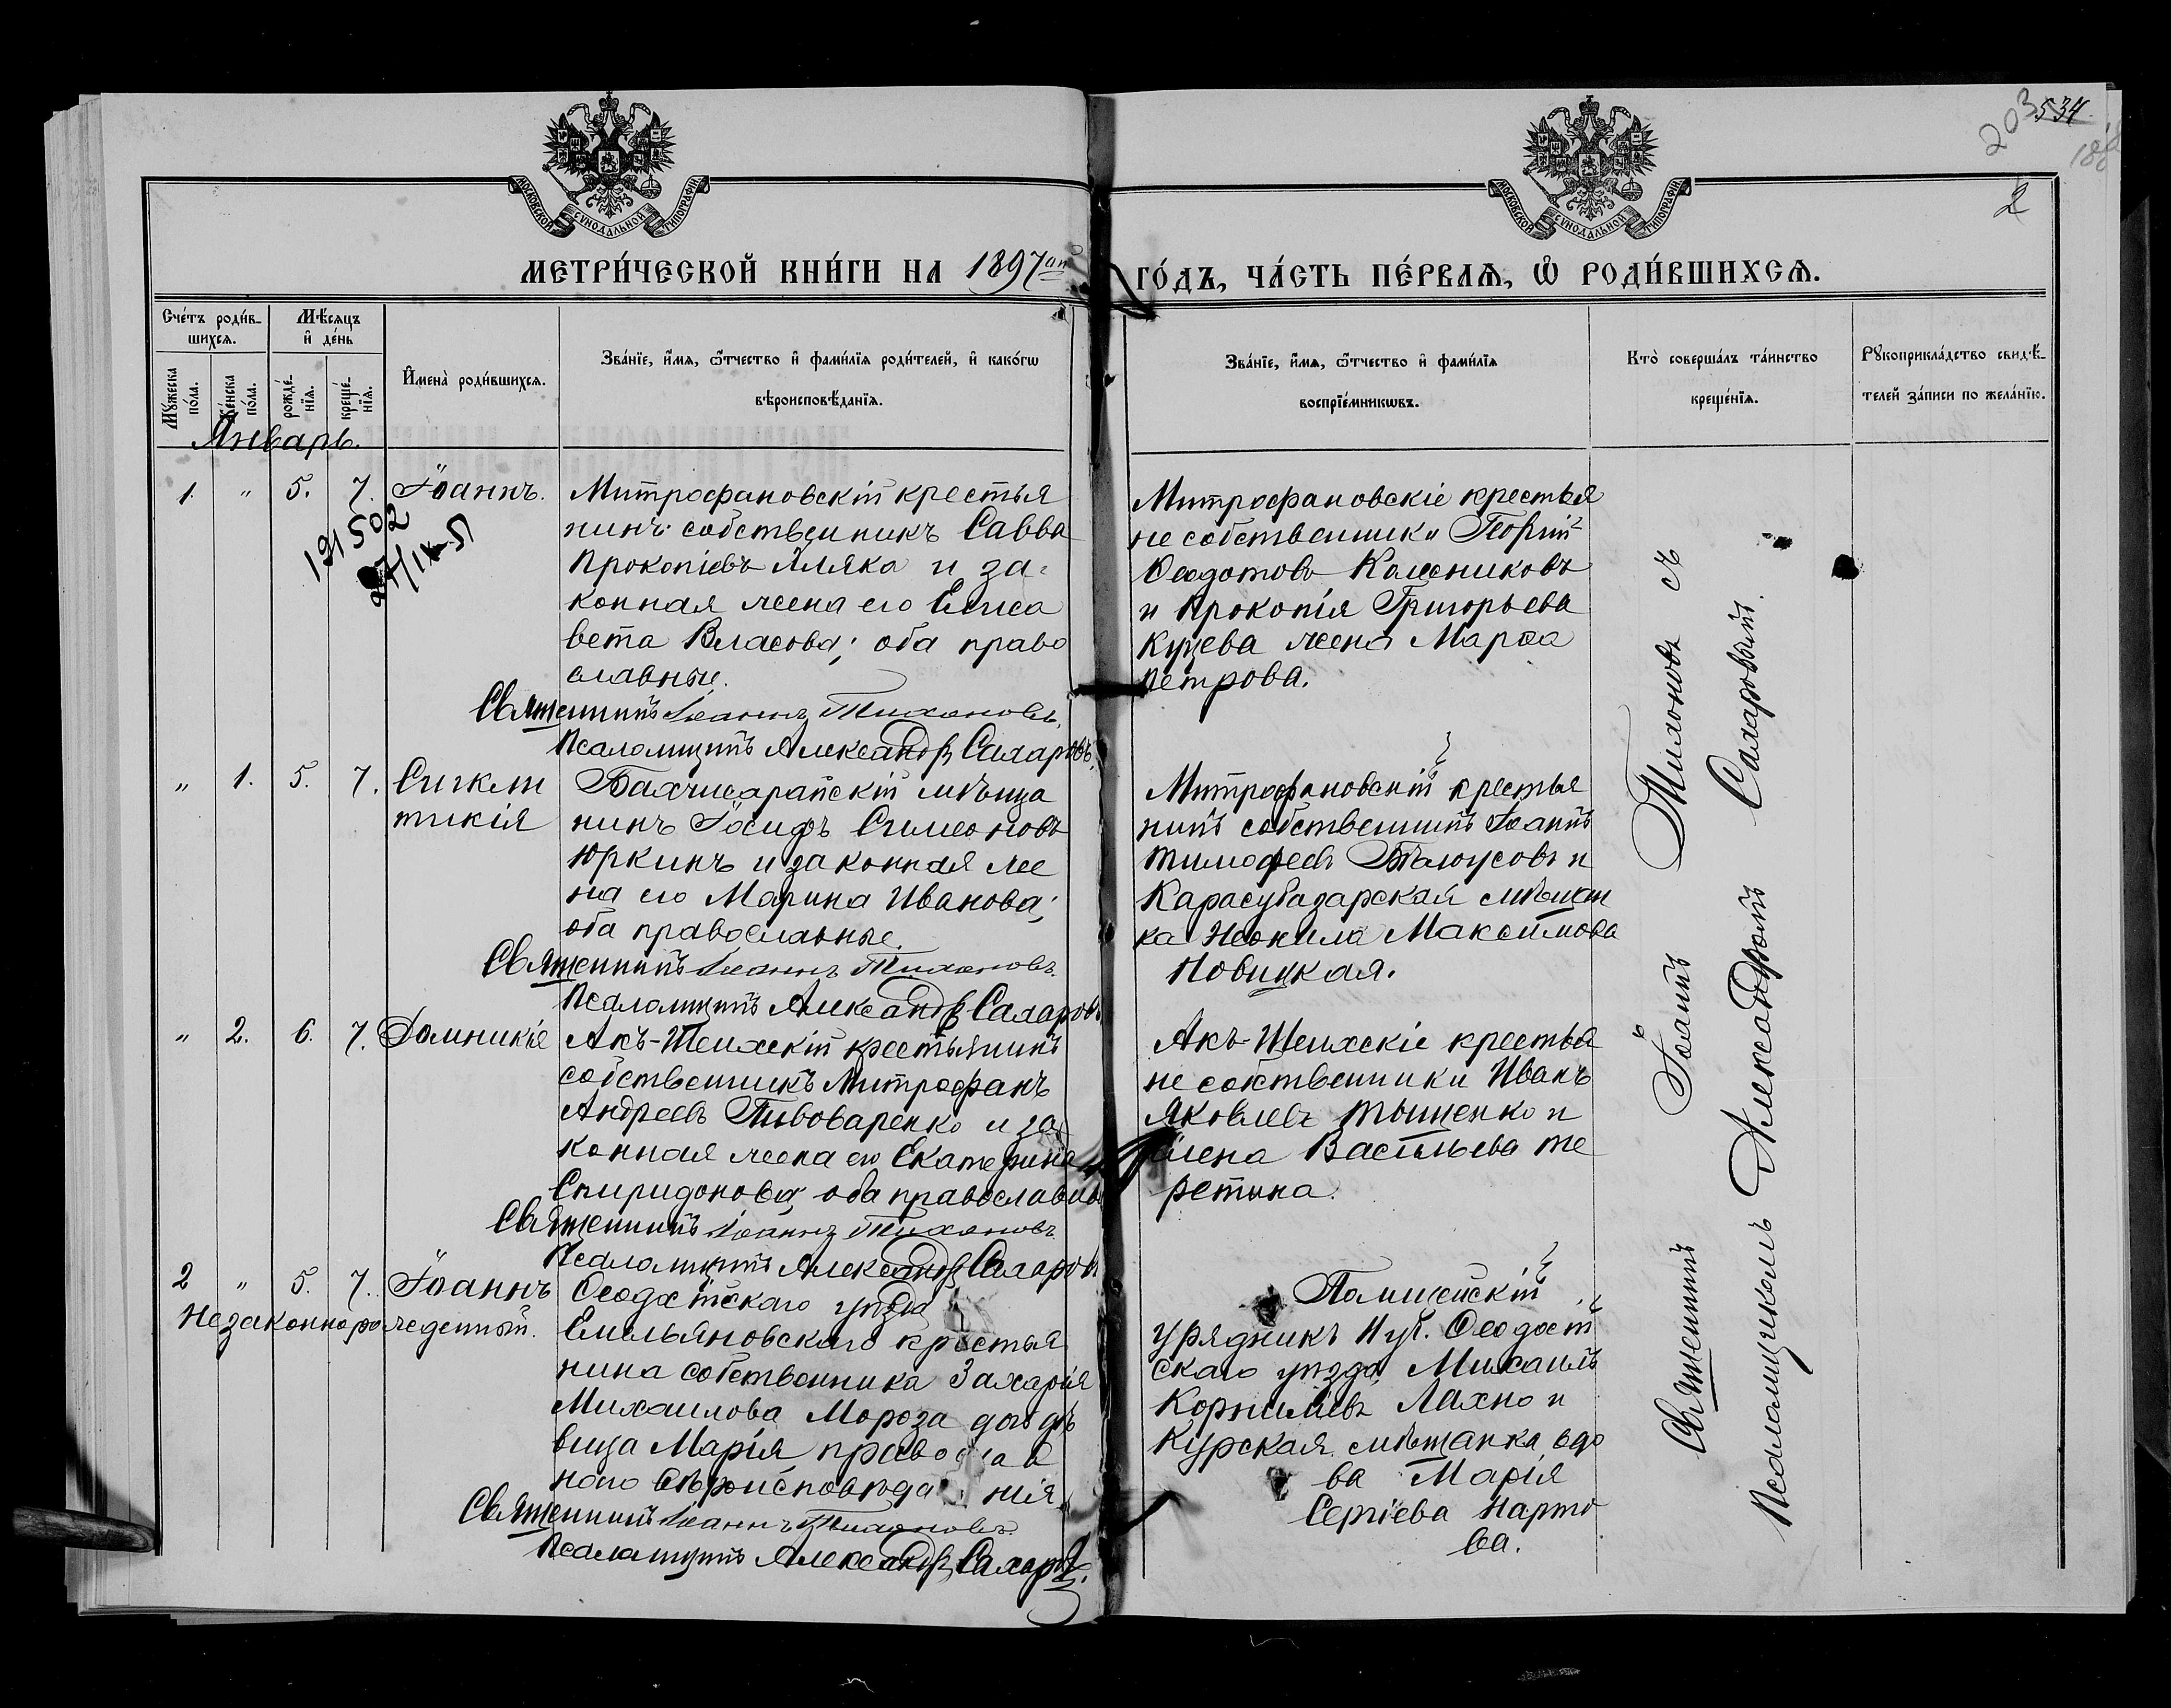 203
534.
2
МОСКОВСКОЙ СУНОДАЛЬНОЙ ТИПОГРАФІИ
МОСКОВСКОЙ СУНОДАЛЬНОЙ ТИПОГРАФІИ
МЕТРИ́ЧЕСКОЙ КНИ́ГИ НА 1897 ГО́ДЪ, ЧА́СТЬ ПЕ́РВАѦ, Ѡ҆ РОДИ́ВШИХСѦ.
Сче́тъ роди́в-
шихсѧ.
Мѣ́сѧцъ
и҆ де́нь
Мꙋ́жеска
по́ла.
Же́нска
по́ла.
рожде́-
нїѧ.
креще́-
нїѧ.
И҆мена̀ роди́вшихсѧ.
Зва́нїе, и҆́мѧ, ѻ҆́тчество и҆ фами́лїѧ роди́телей, и҆ како́гѡ
вѣроисповѣ́данїѧ.
Зва́нїе, и҆́мѧ, ѻ҆́тчество и҆ фами́лїѧ
воспрїе́мникѡвъ.
Кто̀ соверша́лъ та́инство
креще́нїѧ.
Рꙋкоприкла́дство свидѣ́-
телей за́писи по жела́нїю.
Январь.
1. " 5. 7. Іоаннъ.
191502
27/IX-51
Митрофановскій крестья
нинъ собственникъ Савва
Прокопіевъ Иляка и за-
конная жена его Елиса
вета Власова; оба право
славные.
Священникъ Іоаннъ Тихоновъ.
Псаломщикъ Александръ Сахаровъ.
Митрофановскіе крестья
не собственники Георгій
Ѳеодотовъ Колесниковъ
и Прокопія Григорьева
Куцева жена Марѳа
Петрова.
" 1. 5. 7. Сигкли
тикія
Бахчисарайскій мѣща
нинъ Іосифъ Симеоновъ
Юркинъ и законная же
на его Марина Иванова;
оба православные.
Священникъ Іоаннъ Тихоновъ.
Псаломщикъ Александръ Сахаровъ
Митрофановскій крестья
нинъ собственникъ Іоаннъ
Тимоѳеевъ и
Карасубазарская мѣщан
ка Неонила Максимова
Новицкая.
" 2. 6. 7. Домникіе
Акъ-Шеихскій крестьянинъ
собственникъ Митрофанъ
Андреевъ Пивоваренко и за
конная жена его Екатерина
Спиридонова, оба православны
Священникъ Іоаннъ Тихоновъ.
Псаломщикъ Александръ Сахаровъ
Акъ-Шеихскіе крестья
не собственники Иванъ
Яковлевъ Тыщенко и
Елена Васильева Те
ретина.
2 " 5. 7. Іоаннъ
Незаконнорожденный.
Ѳеодосійскаго уѣзда
Емельяновскаго крестья
нина собственника Захарія
Михаилова Мороза дочь дѣ
вица Марія, православ
наго вѣроисповѣданія.
Священникъ Іоаннъ Тихоновъ.
Псаломщикъ Александръ Сахаровъ.
Полицейскій
урядникъ 11 уч. Ѳеодосій
скаго уѣзда, Михаилъ
Корниліевъ Лахно и
Курская мѣщанка, вдо
ва Марія
Сергіева Нарто
ва.
Священникъ Іоаннъ Тихоновъ съ
Псаломщикомъ Александромъ Сахаровымъ.